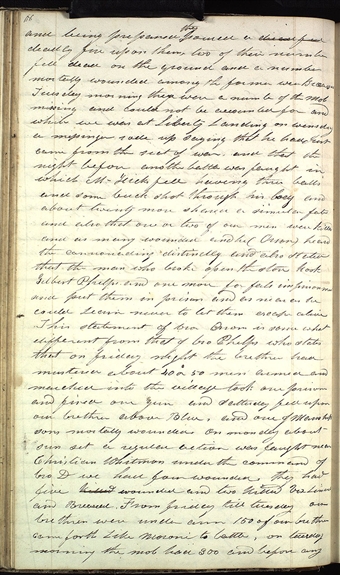 86
and being prepared they poured a deadly fire upon them, two of their number
fell dead on the ground and a number
mortally wounded among the former was Brazeale
Tuesday morning there were a number of the mob
missing and could not be accounted for and
while we was at Liberty Landing on wensday
a messenger rode up saying that he had Just
came from the seat of war and that the
night before another battle was faught in
which Mr Hick fell haveing three balls
and some buck shot through his body and
about twenty more shared a similar fate
and also that one or two of our men were killed
and as many wounded and he (Orson) heard
the cannonading distinctly and also stated
that the man who broke open the store took
Gilbert Phelps and one more for fals imprisonment
and put them in prison and as near as he
could learn never to let them escape alive
This statement of bro Orson is some what
different from that of bro Phelps who states
that on friday night the brethren had
mustered about 40 or 50 men armed and
marched into the village took one prison
and fired one gun and Saturday fell upon
our brethren above Blue, and one of Manship
sons mortally wounded on monday about
sun set a regular action was faught near
Christian Whitmers under the command of
bro D we had four wounded they had
five wounded and two killed viz Linvill
and Brazeal. From friday till tuesday our
brethren were under arms 150 of our brethren
came forth like Moroni to battle, on tuesday
morning the mob had 300 and before any